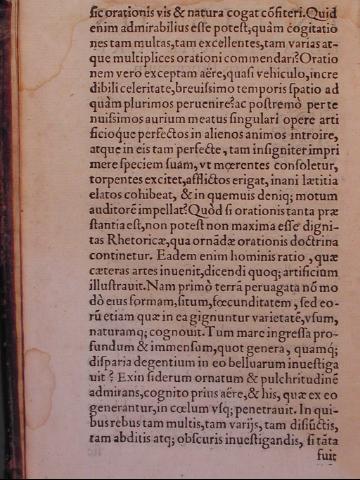 sic orationis vis & natura cogat cõfiteri. Quid
enim admirabilius esse potest, quàm cogitatio
nes tam multas, tam excellentes, tam varias at-
que multiplices orationi commendari? Oratio
nem vero exceptam aëre, quasi vehiculo, incre
dibili celeritate, breuissimo temporis spatio ad
quàm plurimos peruenire? ac postremò per te
nuissimos aurium meatus singulari opere arti
ficioq́ue perfectos in alienos animos introire,
atque in eis tam perfecte, tam insigniter impri
mere speciem suam, vt mœrentes consoletur,
torpentes excitet, afflictos erigat, inani lætitia
elatos cohibeat, & in quemuis deniq; motum
auditorẽ impellat? Quòd si orationis tanta præ
stantia est, non potest non maxima esse digni-
tas Rhetoricæ, qua ornãdæ orationis doctrina
continetur. Eadem enim hominis ratio, quæ
cæteras artes inuenit, dicendi quoq; artificium
illustrauit. Nam primò terrã peruagata nõ mo
dò eius formam, situm, fœcunditatem, sed eo-
rũ etiam quæ in ea gignuntur varietatẽ, vsum,
naturamq; cognouit. Tum mare ingressa pro-
fundum & immensum, quot genera, quamq;
disparia degentium in eo belluarum inuestiga
uit? Exin siderum ornatum & pulchritudinẽ
admirans, cognito prius aëre, & his, quæ ex eo
generantur, in cœlum vsq; penetrauit. In qui-
bus rebus tam multis, tam varijs, tam disiũctis,
tam abditis atq; obscuris inuestigandis, si tãta
fuit